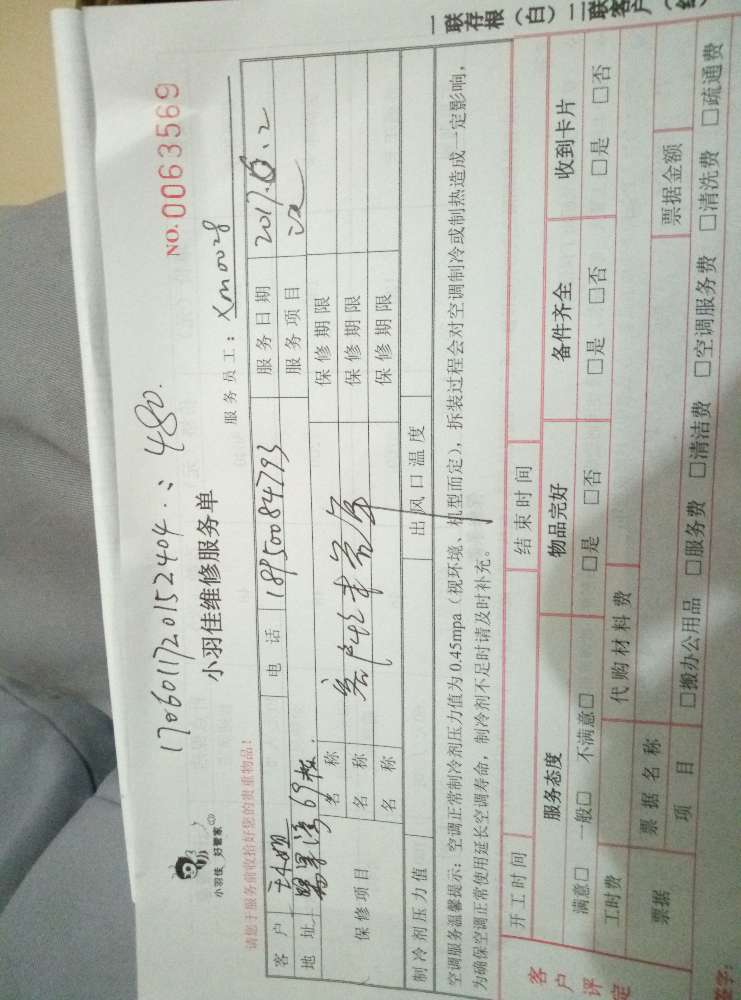 NO.0063569
1706011720152404.: 480.
小羽佳 好管家
小羽佳维修服务单
服务员工：Xm0028
请您于服务前收拾好您的贵重物品！
客户 电话 18950084793 服务日期 2017.6.2
地址 69 服务项目
保修项目 名称 保修期限
名称 保修期限
名称 保修期限
制冷剂压力值 出风口温度
空调服务温馨提示：空调正常制冷剂压力值为0.45mpa（视环境、机型而定），拆装过程会对空调制冷或制热造成一定影响，
为确保空调正常使用延长空调寿命，制冷剂不足时请及时补充。
开工时间 结束时间
客户评定 服务态度 物品完好 备件齐全 收到卡片
满意□ 一般□ 不满意□ □是 □否 □是 □否 □是 □否
工时费 代购材料费
票据 票据名称 票据金额
项目 □搬办公用品 □服务费 □清洁费 □空调服务费 □清洗费 □疏通费
签字：
一联存根（白）二联客户（红